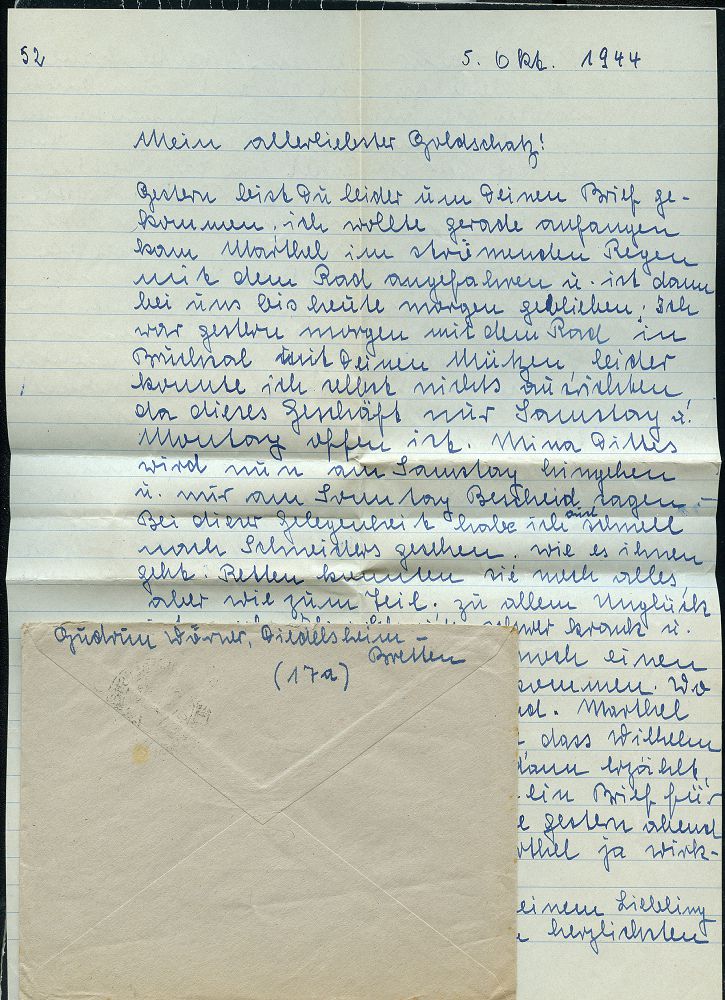 52
5. Okt. 1944
Mein allerliebster Goldschatz!
Gestern bist Du leider um Deinen Brief ge-
kommen, ich wollte gerade anfangen
kam Marthel im strömenden Regen
mit dem Rad angefahren u. ist dann
bei uns bis heute morgen geblieben. Ich
war gestern morgen mit dem Rad in
Bruchsal mit Deinen Mützen, leider
konnte ich selbst nichts ausrichten
da dieses Geschäft nur Samstag u.
Montag offen ist. Mina Dittes
wird nun am Samstag hingehen
u. mir am Sonntag Bescheid sagen.
Bei dieser Gelegenheit habe ich auch schnell
nach Schneiders gesehen, wie es ihnen
geht. Retten konnten sie noch alles,
aber wie zum Teil. zu allem Unglück
schwer krank u.
noch einen
kommen. Wo
Marthel
dass Wilhelm
dann erzählt,
ein Brief für
gestern abend
ja wirk-
meinem Liebling
herzlichsten
Gudrun Dörner, Diedelsheim -
Bretten
(17a)